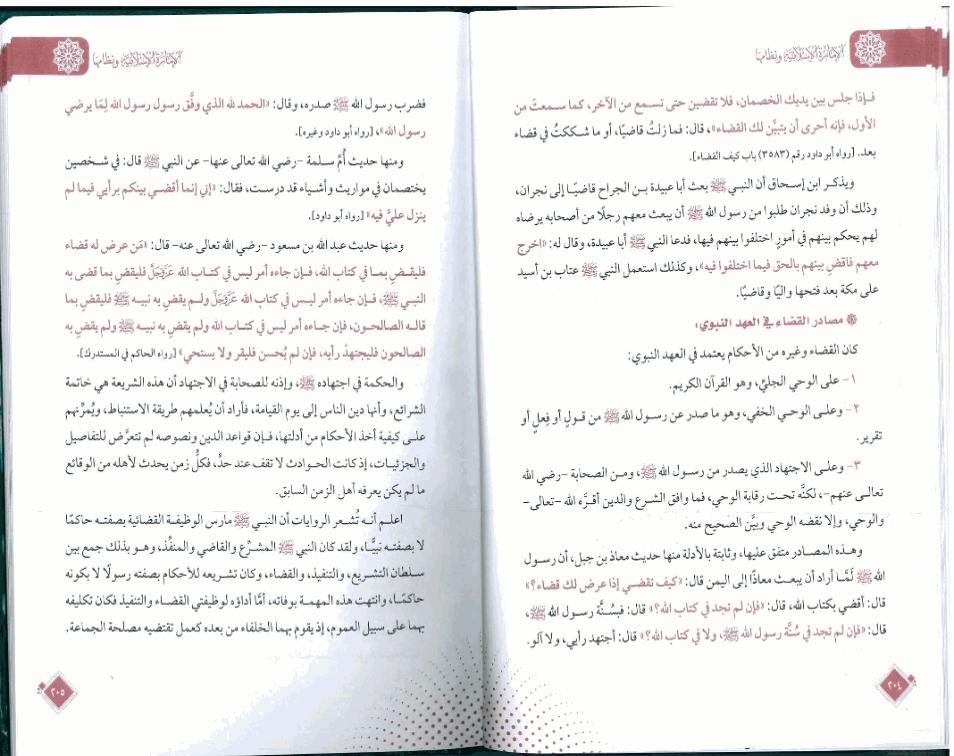 الإمارة الإسلامية ونظامها
فإذا جلس بين يديك الخصمان، فلا تقضين حتى تسمع من الآخر، كما سمعتَ من
الأول، فإنه أحرى أن يتبيَّن لك القضاء»، قال: فما زلتُ قاضيًا، أو ما شككتُ في قضاء
بعد. [رواه أبو داود رقم (٣٥٨٣) باب كيف القضاء].
ويذكر ابن إسحاق أن النبي ﷺ بعث أبا عبيدة بن الجراح قاضيًا إلى نجران،
وذلك أن وفد نجران طلبوا من رسول الله ﷺ أن يبعث معهم رجلًا من أصحابه يرضاه
لهم يحكم بينهم في أمورٍ اختلفوا بينهم فيها، فدعا النبي ﷺ أبا عبيدة، وقال له: «اخرج
معهم فاقضِ بينهم بالحق فيما اختلفوا فيه»، وكذلك استعمل النبي ﷺ عتاب بن أسيد
على مكة بعد فتحها واليًا وقاضيًا.
مصادر القضاء في العهد النبوي:
كان القضاء وغيره من الأحكام يعتمد في العهد النبوي:
١- على الوحي الجليِّ، وهو القرآن الكريم.
٢- وعلى الوحي الخفي، وهو ما صدر عن رسول الله ﷺ من قولٍ أو فِعلٍ أو
تقرير.
٣- وعلى الاجتهاد الذي يصدر من رسول الله ﷺ، ومن الصحابة -رضي الله
تعالى عنهم-، لكنَّه تحت رقابة الوحي، فما وافق الشرع والدين أقرَّه الله -تعالى-
والوحي، وإلا نقضه الوحي وبيَّن الصحيح منه.
وهذه المصادر متفق عليها، وثابتة بالأدلة منها حديث معاذ بن جبل، أن رسول
الله ﷺ لَمَّا أراد أن يبعث معاذًا إلى اليمن قال: «كيف تقضي إذا عرض لك قضاء؟»
قال: أقضي بكتاب الله، قال: «فإن لم تجد في كتاب الله؟» قال: فبسُنَّة رسول الله ﷺ،
قال: «فإن لم تجد في سُنَّة رسول الله ﷺ، ولا في كتاب الله؟» قال: أجتهد رأيي، ولا آلو.
٢٠٤
الإمارة الإسلامية ونظامها
فضرب رسول الله ﷺ صدره، وقال: «الحمد لله الذي وفَّق رسول رسول الله لِمَا يرضي
رسول الله»، [رواه أبو داود وغيره].
ومنها حديث أُمِّ سلمة -رضي الله تعالى عنها- عن النبي ﷺ قال: في شخصين
يختصمان في مواريث وأشياء قد درست، فقال: «إني إنما أقضي بينكم برأيي فيما لم
ينزل عليَّ فيه» [رواه أبو داود].
ومنها حديث عبد الله بن مسعود -رضي الله تعالى عنه- قال: «مَن عرض له قضاء
فليقضِ بما في كتاب الله، فإن جاءه أمر ليس في كتاب الله عَزَّوَجَلَّ فليقضِ بما قضى به
النبي ﷺ، فإن جاءه أمر ليس في كتاب الله عَزَّوَجَلَّ ولم يقضِ به نبيه ﷺ فليقضِ بما
قاله الصالحون، فإن جاءه أمر ليس في كتاب الله ولم يقضِ به نبيه ﷺ ولم يقضِ به
الصالحون فليجتهدْ رأيه، فإن لم يُحسن فليقر ولا يستحي» [رواه الحاكم في المستدرك].
والحكمة في اجتهاده ﷺ، وإذنه للصحابة في الاجتهاد أن هذه الشريعة هي خاتمة
الشرائع، وأنها دين الناس إلى يوم القيامة، فأراد أن يُعلمهم طريقة الاستنباط، ويُمرِّنهم
على كيفية أخذ الأحكام من أدلتها، فإن قواعد الدين ونصوصه لم تتعرَّض للتفاصيل
والجزئيات، إذ كانت الحوادث لا تقف عند حدٍّ، فكلُّ زمن يحدث لأهله من الوقائع
ما لم يكن يعرفه أهل الزمن السابق.
اعلم أنه تُشعر الروايات أن النبي ﷺ مارس الوظيفة القضائية بصفته حاكمًا
لا بصفته نبيًّا، ولقد كان النبي ﷺ المشرِّع والقاضي والمنفِّذ، وهو بذلك جمع بين
سلطان التشريع، والتنفيذ، والقضاء، وكان تشريعه للأحكام بصفته رسولًا لا بكونه
حاكمًا، وانتهت هذه المهمة بوفاته، أمَّا أداؤه لوظيفتي القضاء والتنفيذ فكان تكليفه
بهما على سبيل العموم، إذ يقوم بهما الخلفاء من بعده كعمل تقتضيه مصلحة الجماعة.
٢٠٥